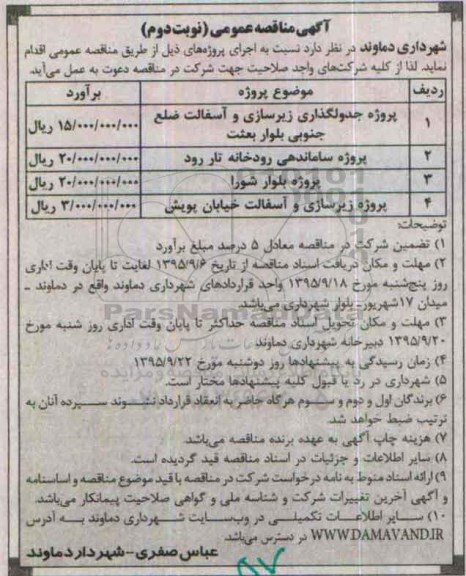 آگهی مناقصه عمومی (نوبت دوم)
شهرداری دماوند در نظر دارد نسبت به اجرای پروژه‌های ذیل از طریق مناقصه عمومی اقدام
نماید. لذا از کلیه شرکت‌های واجد صلاحیت جهت شرکت در مناقصه دعوت به عمل می‌آید.
ردیف موضوع پروژه برآورد
۱ پروژه جدولگذاری زیرسازی و آسفالت ضلع جنوبی بلوار بعثت ۱۵/۰۰۰/۰۰۰/۰۰۰ ریال
۲ پروژه ساماندهی رودخانه تار رود ۲۰/۰۰۰/۰۰۰/۰۰۰ ریال
۳ پروژه بلوار شورا ۲۰/۰۰۰/۰۰۰/۰۰۰ ریال
۴ پروژه زیرسازی و آسفالت خیابان پویش ۳/۰۰۰/۰۰۰/۰۰۰ ریال
توضیحات:
۱) تضمین شرکت در مناقصه معادل ۵ درصد مبلغ برآورد
۲) مهلت و مکان دریافت اسناد مناقصه از تاریخ ۱۳۹۵/۹/۶ لغایت تا پایان وقت اداری
روز پنج‌شنبه مورخ ۱۳۹۵/۹/۱۸ واحد قراردادهای شهرداری دماوند واقع در دماوند ـ
میدان ۱۷شهریور- بلوار شهرداری می‌باشد.
۳) مهلت و مکان تحویل اسناد مناقصه حداکثر تا پایان وقت آداری روز شنبه مورخ
۱۳۹۵/۹/۲۰ دبیرخانه شهرداری دماوند
۴) زمان رسیدگی به پیشنهادها روز دوشنبه مورخ ۱۳۹۵/۹/۲۲
۵) شهرداری در رد یا قبول کلیه پیشنهادها مختار است.
۶) برندگان اول و دوم و سوم هرگاه حاضر به انعقاد قرارداد نشوند سپرده آنان به
ترتیب ضبط خواهد شد.
۷) هزینه چاپ آگهی به عهده برنده مناقصه می‌باشد.
۸) سایر اطلاعات و جزئیات در اسناد مناقصه قید گردیده است.
۹) ارائه اسناد منوط به نامه درخواست شرکت در مناقصه با قید موضوع مناقصه و اساسنامه
و آگهی آخرین تغییرات شرکت و شناسه ملی و گواهی صلاحیت پیمانکار می‌باشد.
۱۰) سایر اطلاعات تکمیلی در وب‌سایت شهرداری دماوند به آدرس
WWW.DAMAVAND.IR در دسترس می‌باشد.
عباس صفری-شهردار دماوند
ParsNamadData